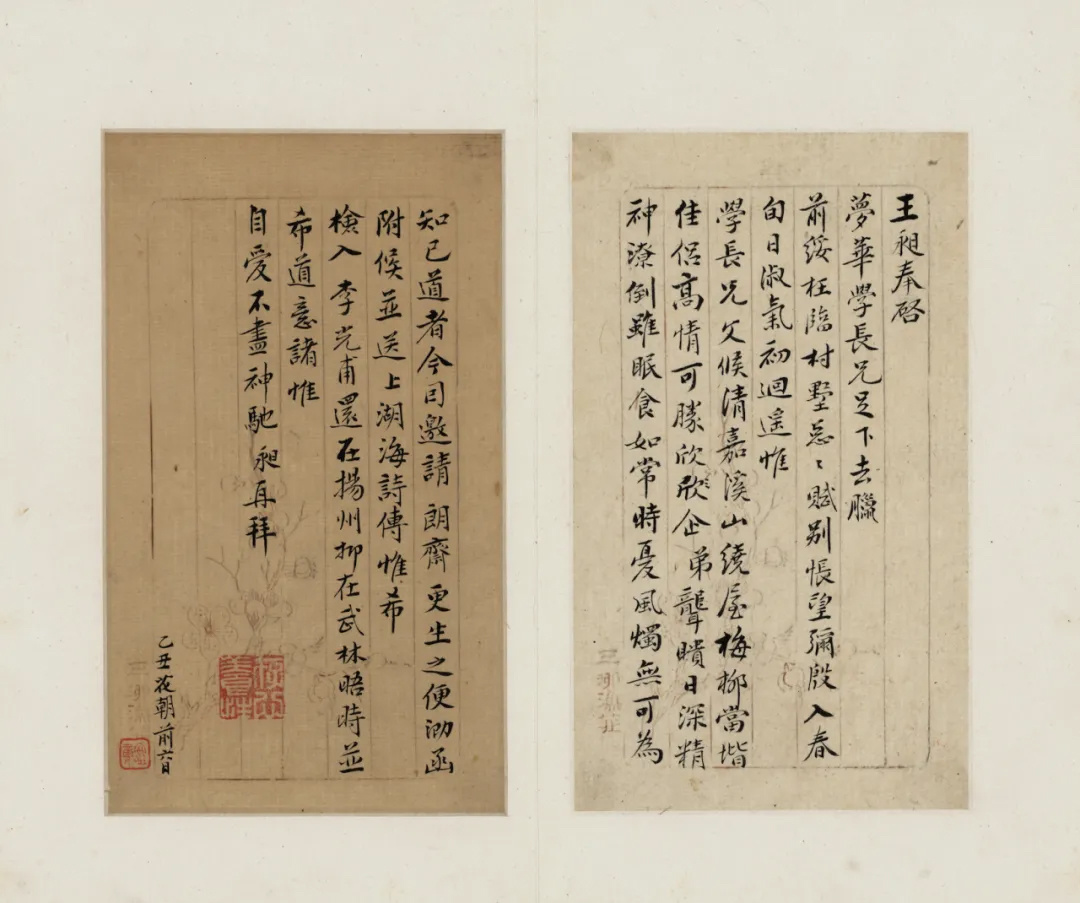 王昶奉啓
夢華學長兄足下去臘
前綏枉臨村墅怱〻賦別悵望彌殷入春
旬日淑氣初迴遥惟
學長兄文候清嘉溪山繞屋梅柳當堦
佳侶高情可勝欣欣企弟聾聵日深精
神潦倒雖眠食如常時憂風燭無可為
知己道者今因邀請朗齋更生之便泐函
附候並送上湖海詩傳惟希
檢入李光甫還在揚州抑在武林晤時並
希道意諸惟
自愛不盡神馳昶再拜
乙丑花朝前